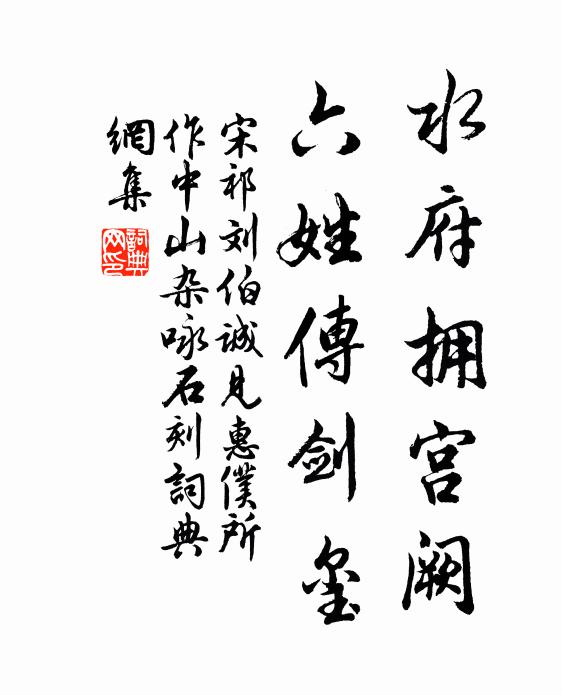 水府拥宫阙
六姓傳剑玺
宋祁刘伯诚见惠僕所
作中山杂咏石刻詞典
網集
詞典网印